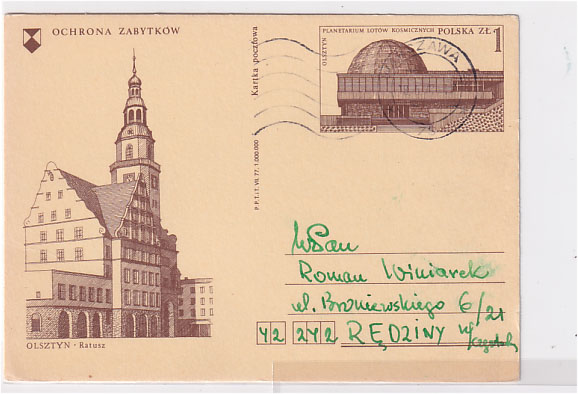 OCHRONA ZABYTKÓW
OLSZTYN · Ratusz
Kartka pocztowa
P.P.T.i T. VII. 77. 1.000.000
OLSZTYN
PLANETARIUM LOTÓW KOSMICZNYCH
POLSKA ZŁ 1
WARSZAWA
WPan
Roman Winiarek
ul. Broniewskiego 6/21
42 242 RĘDZINY